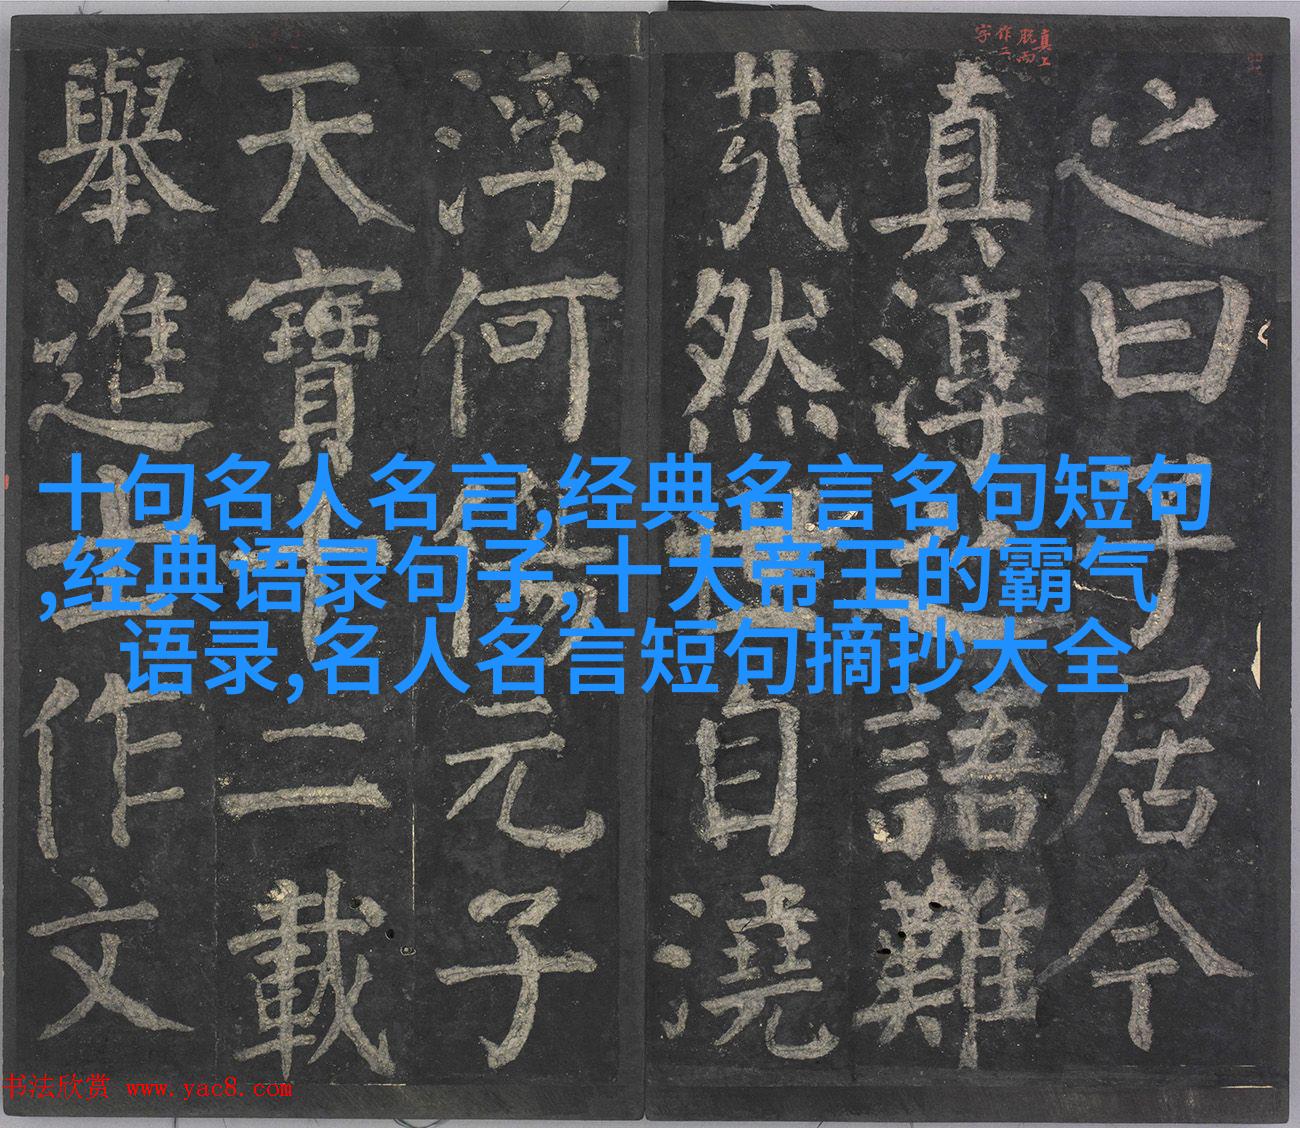 真上
脱而
作二
字
之曰子居今
真淳之語難
㢤然世自澆
浮何傷元子
天寶十二載
舉進士作文
十句名人名言,经典名言名句短句
,经典语录句子,十大帝王的霸气
语录,名人名言短句摘抄大全
书法欣赏 www.yac8.com